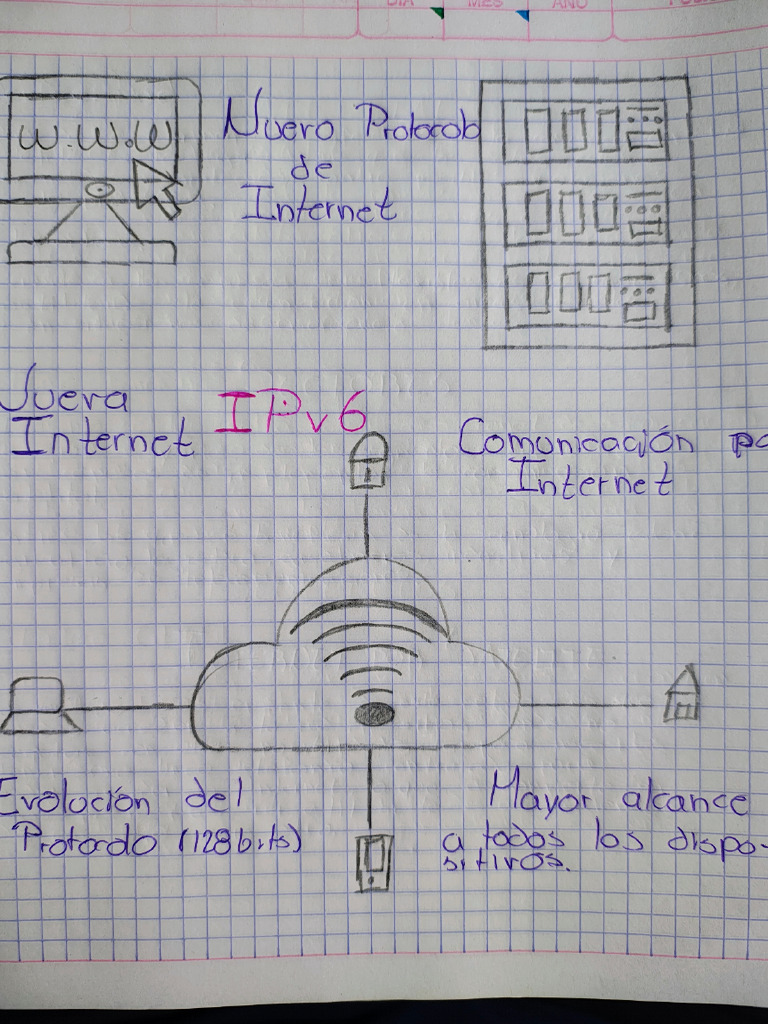 DIA MES AÑO
W.W.W
Nuevo Protocolo
de
Internet
Nueva
Internet
IPv6
Comunicación
Internet
Evolución del
Protocolo (128 bits)
Mayor alcance
a todos los dispo-
sitivos.